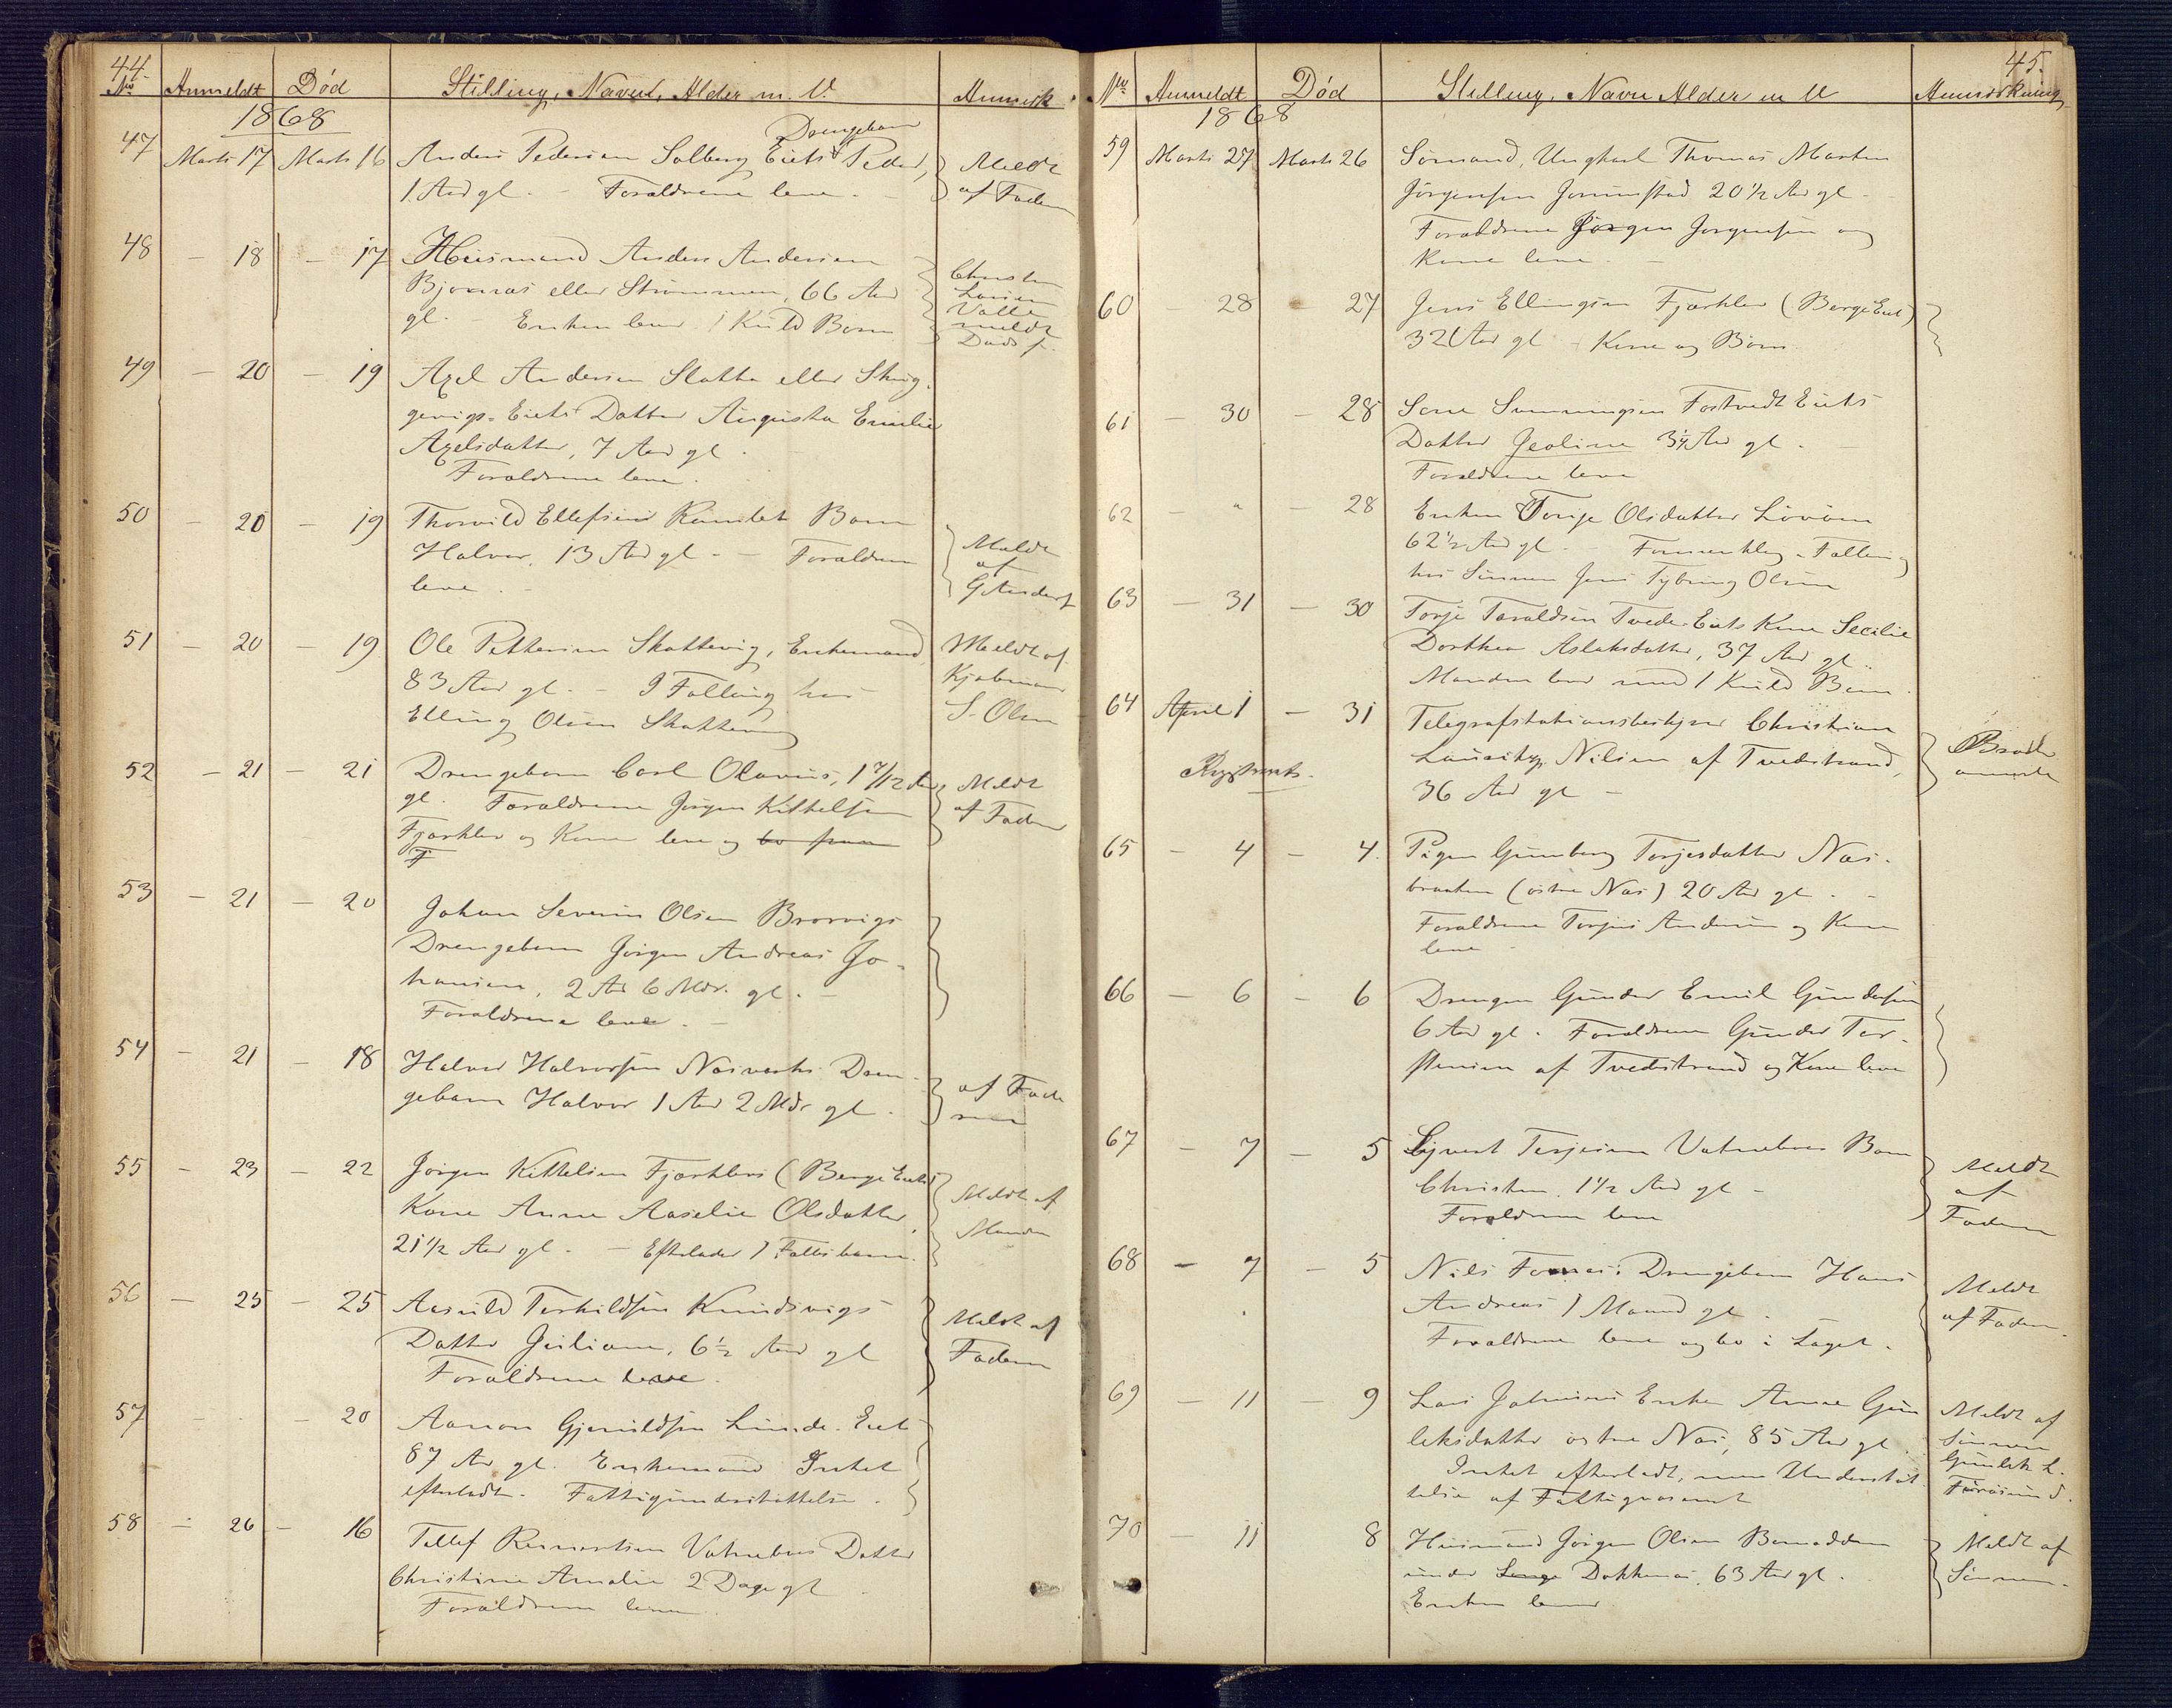 44.
No Anmeldt Død Stilling, Navn, Alder m. V. Anmerk
1868
Drengebarn
47 Marts 17 Marts 16 Anders Pedersen Solberg Eiets Peder, Meldt
1 Aar gl. - Forældrene leve. - af Faderen
48 - 18 - 17 Huusmand Anders Andersen Christen
Bjornæs eller Strømmen, 66 Aar Larsen
gl. - Enken lever 1 Kuld Børn Valle
meldt
Dødsf.
49 - 20 - 19 Axel Andersen Slotta eller
gevigs-Eiets Datter Augusta Emilie
Axelsdatter, 7 Aar gl.
Forældrene leve.
50 - 20 - 19 Thorvild Ellefsens Barn
Halvor, 13 Aar gl. - Forældrene Meldt
leve. af
G. Anders
51 - 20 - 19 Ole Pettersen Skattevig, Enkemand, Meldt af
83 Aar gl. - I Følling hos Kjøbmand
Elling Olsen Skattevig S. Olsen
52 - 21 - 21 Drengebarn Carl Olavus, 1 7/12 Aar Meldt
gl. Forældrene Jørgen Kittelsen af Faderen
Fjærklev og Kone leve og bo
F
53 - 21 - 20 Johan Severin Olsen Brorvigs
Drengebarn Jørgen Andreas Jo-
hansen, 2 Aar 6 Mdr. gl. -
Forældrene leve. -
54 - 21 - 18 Halvor Halvorsen Næsverks Dren-
gebarn Halvor 1 Aar 2 Mdr gl. af Fade
ren
55 - 23 - 22 Jørgen Kittelsen Fjærklevs (Berge Eiets)
Kone Anne Aaselie Olsdatter, Meldt af
21 1/2 Aar gl. - Efterlader 1 Fællesbarn. Manden
56 - 25 - 25 Aasuld Terkildsen Knudsvigs Meldt af
Datter Juliane, 6 1/2 Aar gl Faderen
Forældrene leve.
57 - 20 Aanon Gjeruldsen Lunde-Eiet
87 Aar gl. Enkemand Intet
efterladt. Fattigunderstøttelse.
58 - 26 - 16 Tellef Reinertsen Vatnebus Datter
Christine Amalie 2 Dage gl
Forældrene leve
45.
No Anmeldt Død Stilling, Navn Alder m V Anmærkning
1868
59 Marts 27 Marts 26 Sømand, Ungkarl Thomas Martin
Jørgensen Goderstad 20 1/2 Aar gl -
Forældrene Jørgen Jørgensen og
Kone leve. -
60 - 28 - 27 Jens Ellingsen Fjærklev (Berge Eiet)
32 Aar gl - Kone og Børn
61 - 30 - 28 Sørn Svenningsen Fostvedt Eiets
Datter Jeoline 3 1/4 Aar gl. -
Forældrene leve
62 - " - 28 Enken Torje Olsdatter
62 1/2 Aar gl. -
hos Sønnen Jens Tybring Olsen
63 - 31 - 30 Torje Taraldsen Tvede-Eiets Kone Secilie
Dorthea Aslaksdatter, 37 Aar gl.
Manden lever med 1 Kuld Børn.
64 April 1 - 31 Telegrafstationsbestyrer Christian
Registreret. Nilsen af Tvedestrand, Broder
36 Aar gl -
65 - 4 - 4. Pigen Gunborg Torjesdatter Næs-
braaten (østre Næs) 20 Aar gl. -
Forældrene Torjus Andersen og Kone
leve -
66 - 6 - 6 Drengen Gunder Emil Gundersen
6 Aar gl. Forældrene Gunder Tor-
stensen af Tvedestrand og Kone leve
67 - 7 - 5 Sjvert Terjesen Vatnebus Barn Meldt
Christen, 1 1/2 Aar gl - af
Forældrene leve Faderen
68 - 7 - 5 Nils Drengebarn Hans Meldt
Andreas 1 Maaned gl. af Faderen.
Forældrene leve og bo i Laget.
69 - 11 - 9 Lars Enke Anne Gun Meldt af
leksdatter østre Næs, 85 Aar gl. Sønnen
Intet efterladt, men Understøt Gunlek L.
telse af Fattigvæsenet
70 - 11 8 Huusmand Jørgen Olsen Meldt af
under Lunge Dokkenæs, 63 Aar gl. Sønnen.
Enken lever